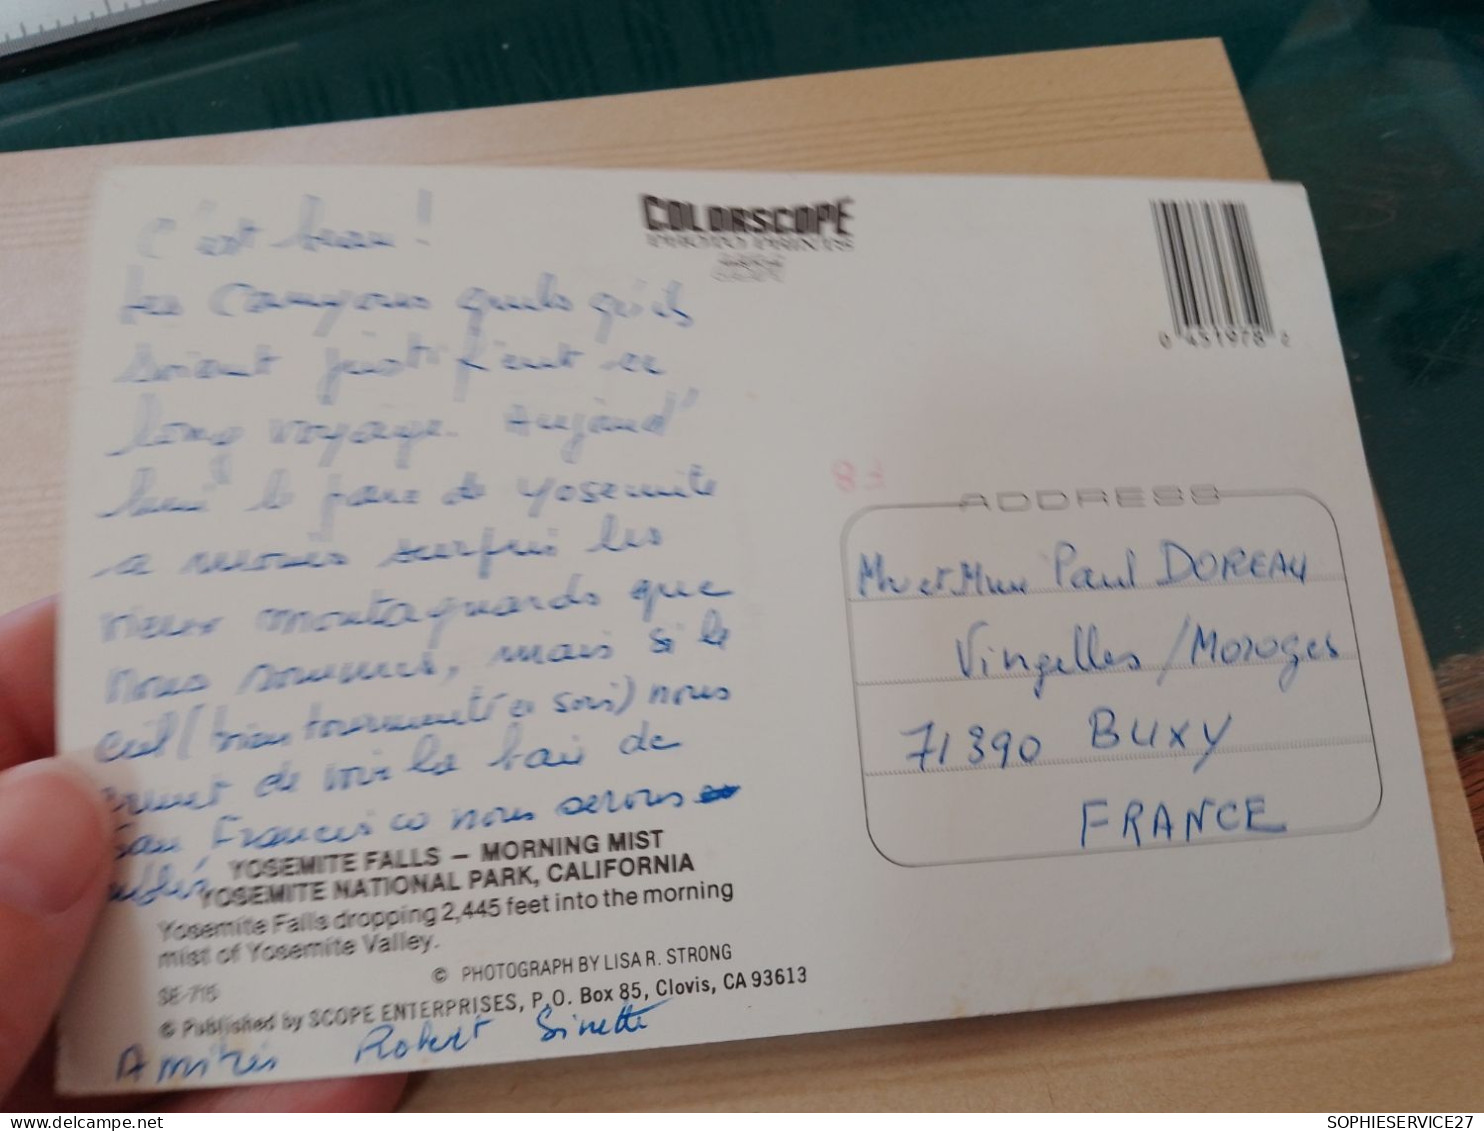 C'est beau !
Les Canyons quels qu'ils
soient justifient ce
long voyage. Aujourd'
hui le parc de Yosemite
a moins surpris les
vieux montagnards que
nous sommes, mais si le
ciel (bien tourmenté ce soir) nous
permet de voir la baie de
San Francisco nous serons
YOSEMITE FALLS — MORNING MIST
YOSEMITE NATIONAL PARK, CALIFORNIA
Yosemite Falls dropping 2,445 feet into the morning
mist of Yosemite Valley.
© PHOTOGRAPH BY LISA R. STRONG
SE-715
© Published by SCOPE ENTERPRISES, P.O. Box 85, Clovis, CA 93613
Amitiés Robert Ginette
COLORSCOPE
PHOTO PRINTS
0 451978
ADDRESS
Mr et Mme Paul DOREAU
Vingelles / Moroges
71390 BUXY
FRANCE
SOPHIESERVICE27